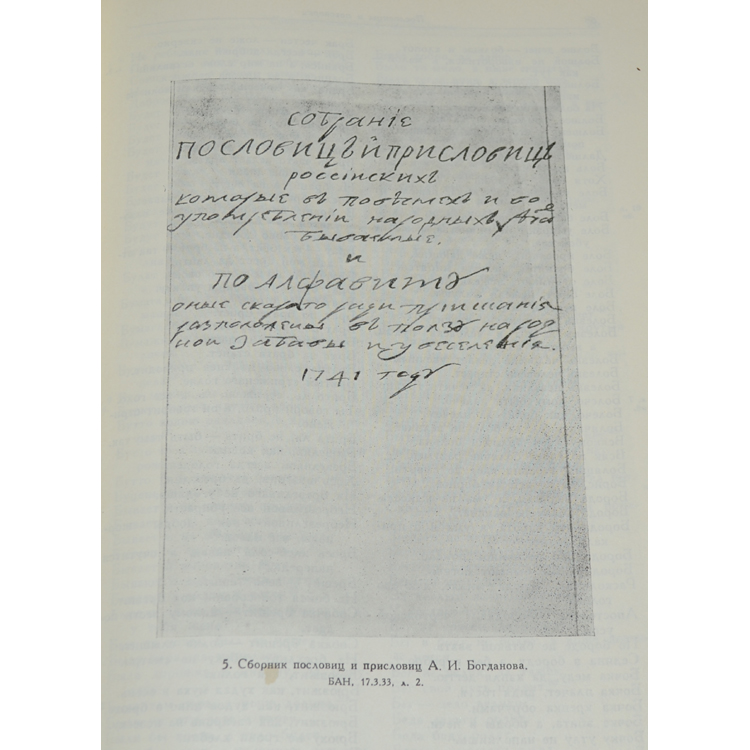 собраніе
пословицъ и присловицъ
россійскихъ
которые въ повѣстехъ и во
употребленіи народныхъ
бываемые.
и
по алфавиту
оные скораго ради приисканія
разположены въ ползу народ
ной забавы и увеселенія.
1741 году
5. Сборник пословиц и присловиц А. И. Богданова.
БАН, 17.3.33, л. 2.